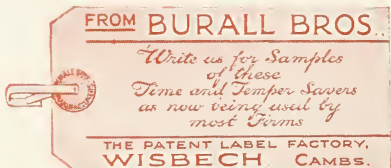 FROM BURALL BROS.
Write us for Samples
of these
Time and Temper Savers
as now being used by
most Firms
THE PATENT LABEL FACTORY,
WISBECH CAMBS.
BURALL BROS
MANUFACTURERS